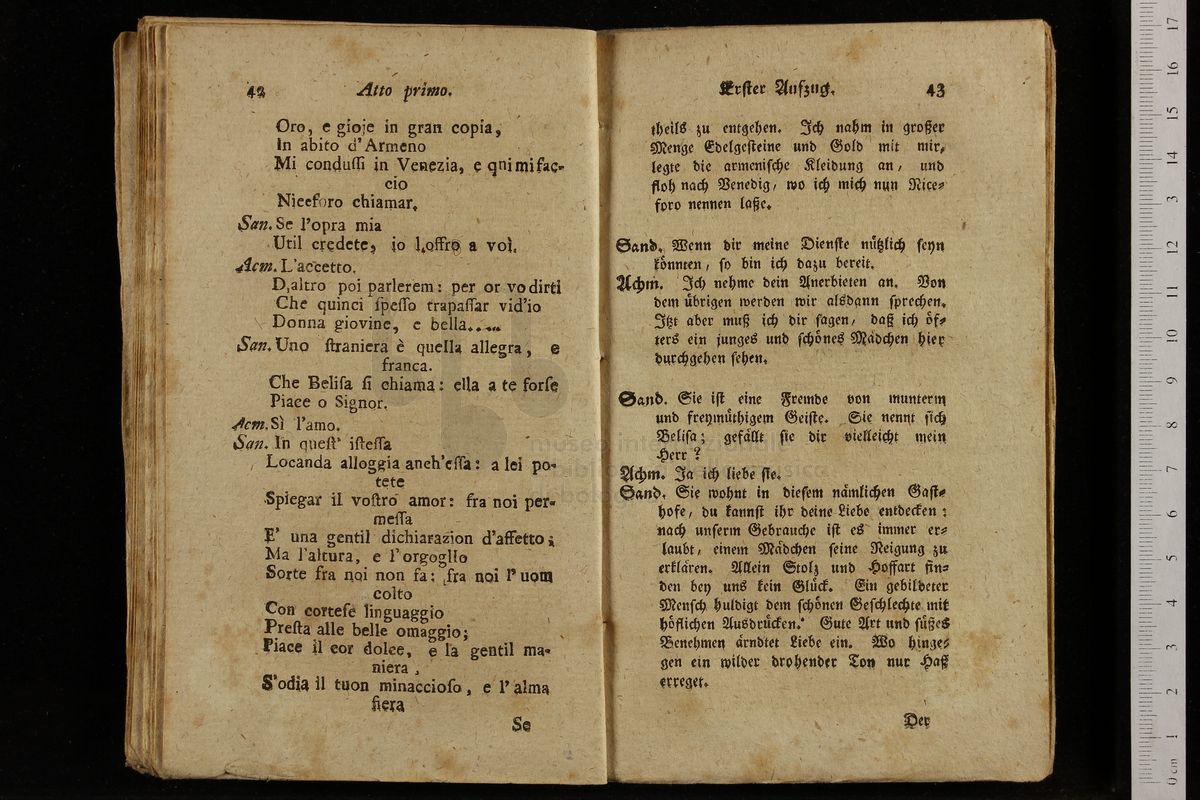 42 Atto primo.
Oro, e gioje in gran copia,
In abito d'Armeno
Mi condussi in Venezia, e qui mi fac-
cio
Niceforo chiamar.
San. Se l'opra mia
Util credete, io l'offro a voi.
Acm. L'accetto.
D'altro poi parlerem: per or vo dirti
Che quinci spesso trapassar vid'io
Donna giovine, e bella....
San. Uno straniera è quella allegra, e
franca.
Che Belisa si chiama: ella a te forse
Piace o Signor.
Acm. Sì l'amo.
San. In quest' istessa
Locanda alloggia anch'essa: a lei po-
tete
Spiegar il vostro amor: fra noi per-
messa
E' una gentil dichiarazion d'affetto;
Ma l'altura, e l'orgoglio
Sorte fra noi non fa: fra noi l'uom
colto
Con cortese linguaggio
Presta alle belle omaggio;
Piace il cor dolce, e la gentil ma-
niera,
S'odia il tuon minaccioso, e l'alma
fiera
Se
Erster Aufzug. 43
theils zu entgehen. Ich nahm in großer
Menge Edelgesteine und Gold mit mir,
legte die armenische Kleidung an, und
floh nach Venedig, wo ich mich nun Nice-
foro nennen laße.
Sand. Wenn dir meine Dienste nützlich seyn
könnten, so bin ich dazu bereit.
Achm. Ich nehme dein Anerbieten an. Von
dem übrigen werden wir alsdann sprechen.
Itzt aber muß ich dir sagen, daß ich öf-
ters ein junges und schönes Mädchen hier
durchgehen sehen.
Sand. Sie ist eine Fremde von munterm
und freymüthigem Geiste. Sie nennt sich
Belisa; gefällt sie dir vielleicht mein
Herr?
Achm. Ja ich liebe sie.
Sand. Sie wohnt in diesem nämlichen Gast-
hofe, du kannst ihr deine Liebe entdecken:
nach unserm Gebrauche ist es immer er-
laubt, einem Mädchen seine Neigung zu
erklären. Allein Stolz und Hoffart fin-
den bey uns kein Glück. Ein gebildeter
Mensch huldigt dem schönen Geschlechte mit
höflichen Ausdrücken. Gute Art und süßes
Benehmen ärndtet Liebe ein. Wo hinge-
gen ein wilder drohender Ton nur Haß
erreget.
Der